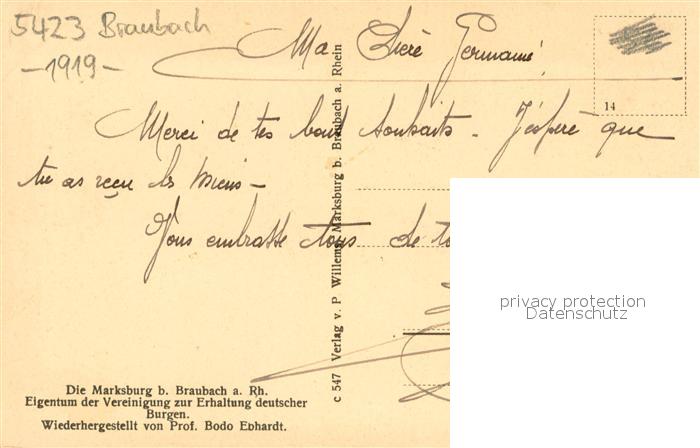 5423 Braubach
-1919-
Ma Chère Germaine
14
Merci de tes bons souhaits - J'espère que
tu as reçu les miens -
Vous embrasse tous de
c 547 Verlag v. P Willems, Marksburg b. Braubach a. Rhein
privacy protection
Datenschutz
Die Marksburg b. Braubach a. Rh.
Eigentum der Vereinigung zur Erhaltung deutscher
Burgen.
Wiederhergestellt von Prof. Bodo Ebhardt.